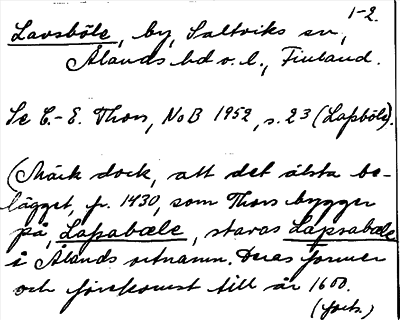 1-2.
Lavsböle, by, Saltviks sn,
Ålands hd o. l., Finland.
Se C.-E. Thors, NoB 1952, s. 23 (Lapböle).
(Märk dock, att det älsta be-
lägget, fr. 1430, som Thors bygger
på, Lapabæle, stavas Lapsabæle
i Ålands ortnamn. Deras former
och förekomst till år 1600.
(forts.)